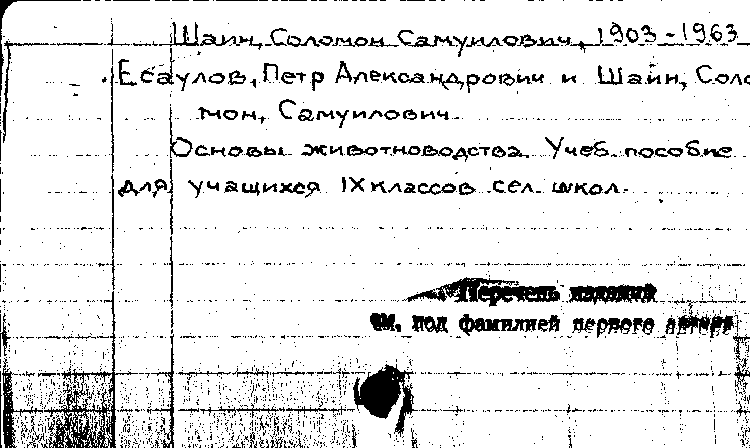 Шаин, Соломон Самуилович, 1903-1963
Есаулов, Петр Александрович и Шаин, Соло
мон, Самуилович
Основы животноводства. Учеб. пособие
для учащихся IX классов сел. школ.
Перечень изданий
см. под фамилией первого автора